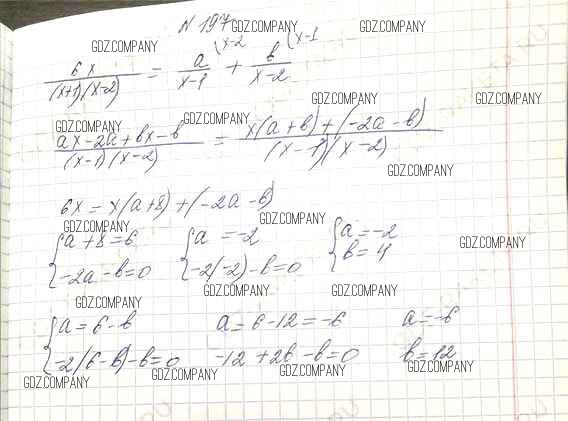 N 197 GDZ.COMPANY GDZ.COMPANY
GDZ.COMPANY (x-2 (x-1
6x/(x+1)(x-2) = a/x-1 + b/x-2
GDZ.COMPANY GDZ.COMPANY
GDZ.COMPANY GDZ.COMPANY
ax-2a+bx-b/(x-1)(x-2) = x(a+b)+(-2a-b)/(x-1)(x-2)
GDZ.COMPANY
6x=x(a+8)+(-2a-b)
GDZ.COMPANY GDZ.COMPANY
{a+8=6 {a=-2 {a=-2
-2a-b=0 -2(-2)-b=0 b=4
GDZ.COMPANY
GDZ.COMPANY GDZ.COMPANY GDZ.COMPANY
{a=6-b a=6-12=-6 a=-6
-2(6-b)-b=0 -12+2b-b=0 b=12
GDZ.COMPANY GDZ.COMPANY GDZ.COMPANY GDZ.COMPANY